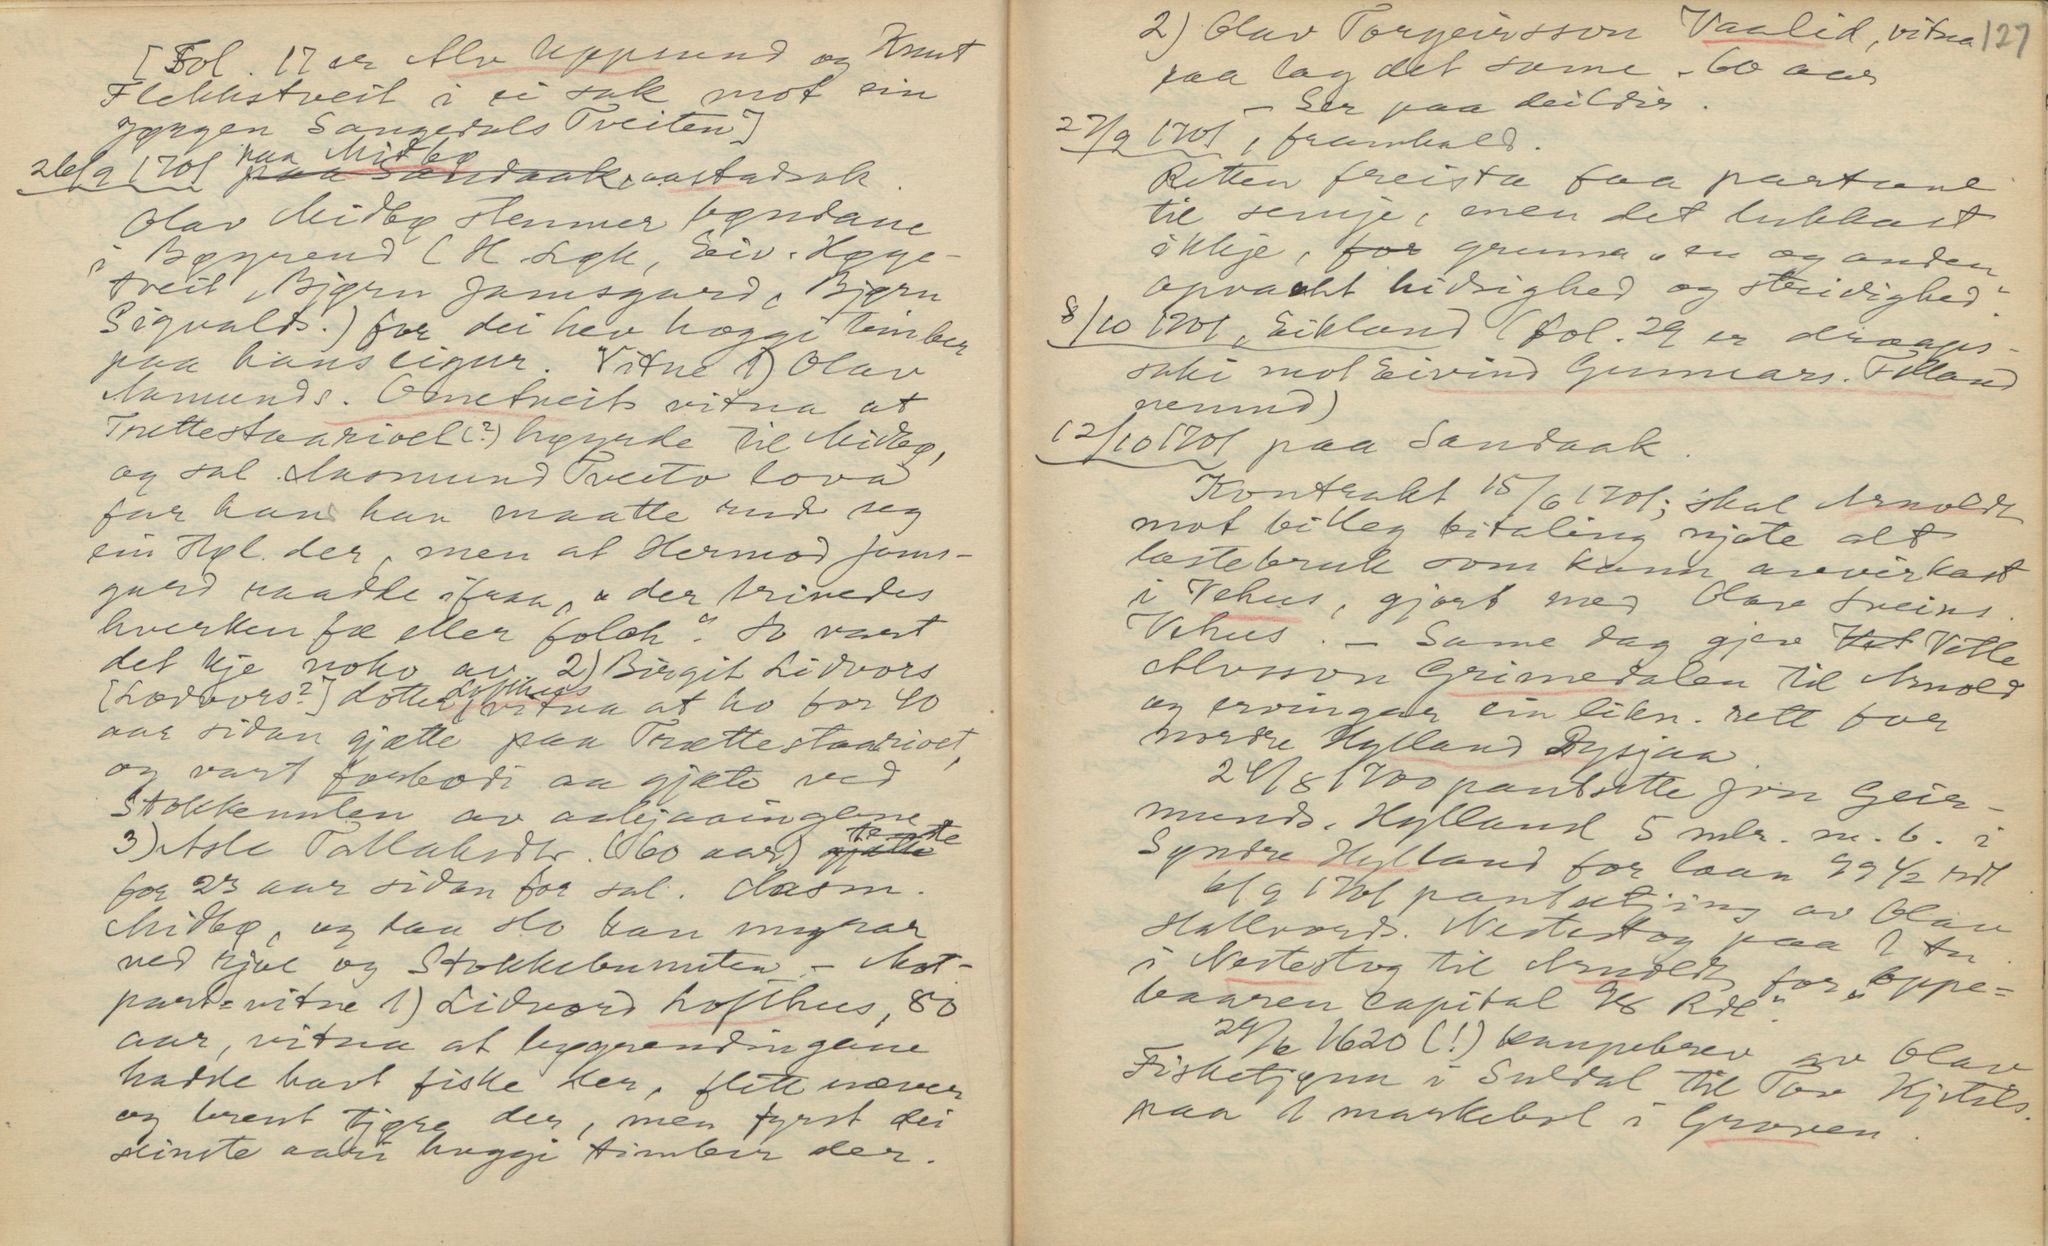 [Fol. 17 er Alv Uppsund og Knut
Flekkstveit i ei sak mot ein
Jørgen Sangedals Tveiten]
26/9 1701 paa Midbø paa Sandaak, aastadsak.
Olav Midbø stemner bøndane
i Bøgrend (H. Løk, Eiv. Høge-
tveit, Bjørn Jamsgard, Bjørn
Sigvalds.) for dei hev høggi timber
paa hans eigur. Vitne 1) Olav
Aamunds. Ometveit vitna at
Trættestaarivel(?) høyrde til Midbø,
og sal. Aasmund Tveito lova
far hans han maatte rud seg
ein Hpl. der, men at Hermod Jams-
gard raadde ifraa, "der trivedes
hverken fæ eller folch". So vart
det kje noko av. 2) Birgit Lidvors
[Lædvors?] dotter Lofthus vitna at ho for 40
aar sidan gjætte paa Trættestaarivet,
og vart forbodi aa gjæte ved
Stokkenuten av
3) Asle Tallaksdtr. (60 aar) gjætte tente
for 23 aar sidan for sal. Aasm.
Midbø, og daa slo han
ved Kjoe og Stokkebunuten. – Mot-
parts-vitne 1) Lidvord Lofthus, 80
aar, vitna at bøgrendingane
hadde havt fiske der, flett næver
og brent tjøre der, men fyrst dei
seinste aari høggi timber der.
127
2) Olav Torgeirsson Vaalid, vitna
paa lag det same. 60 aar
– Ser paa deildir.
27/9 1701, framhald.
Retten freista faa partane
til semje, men det lukkast
ikkje, for grunna "en og anden
opvackt hidsighed og stridighed"
8/10 1701, Eikland (fol. 29 er draaps-
saki mot Eivind Gunnars. Felland
nemnd)
12/10 1701 paa Sandaak.
Kontrakt 15/6 1701; skal Arnoldt
mot billeg bitaling njote alt
lastebruk som kann avvirkast
i Vehus, gjort med Olav Sveins.
Vehus. – Same dag gjev Vet Vetle
Alvsson Grimedalen til Arnold
og ervingar ein likn. rett for
nordre Hylland Rysjaa.
24/8 1700 pantsette Jon Geir-
munds. Hylland 5 mlr. m. b. i
Syndre Hylland for laan 99 1/2 rdl.
6/9 1701 pantsetjing av Olav
Hallvords. Nestestog paa 1 tn.
i Nestestog til Arnoldt for "oppe-
baaren capital 96 Rdl".
29/6 1620 (!) kaupebrev av Olav
Fisketjønn i Suldal til Tov Kjetils.
paa 1 markebol i Groven.